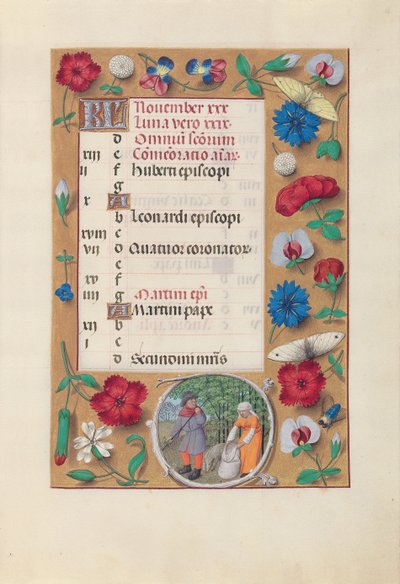 KL November xxx
Luna vero xxix
d Omniū scōrum
xiii e Cōmēoratio aīaꝝ
ii f Huberti episcopi
g
x A
b Leonardi episcopi
xviii c
vii d Quatuor coronator
e
xv f
iiii g Martini epī
A Martini pape
xii b
i c
d Secundini mr̄is